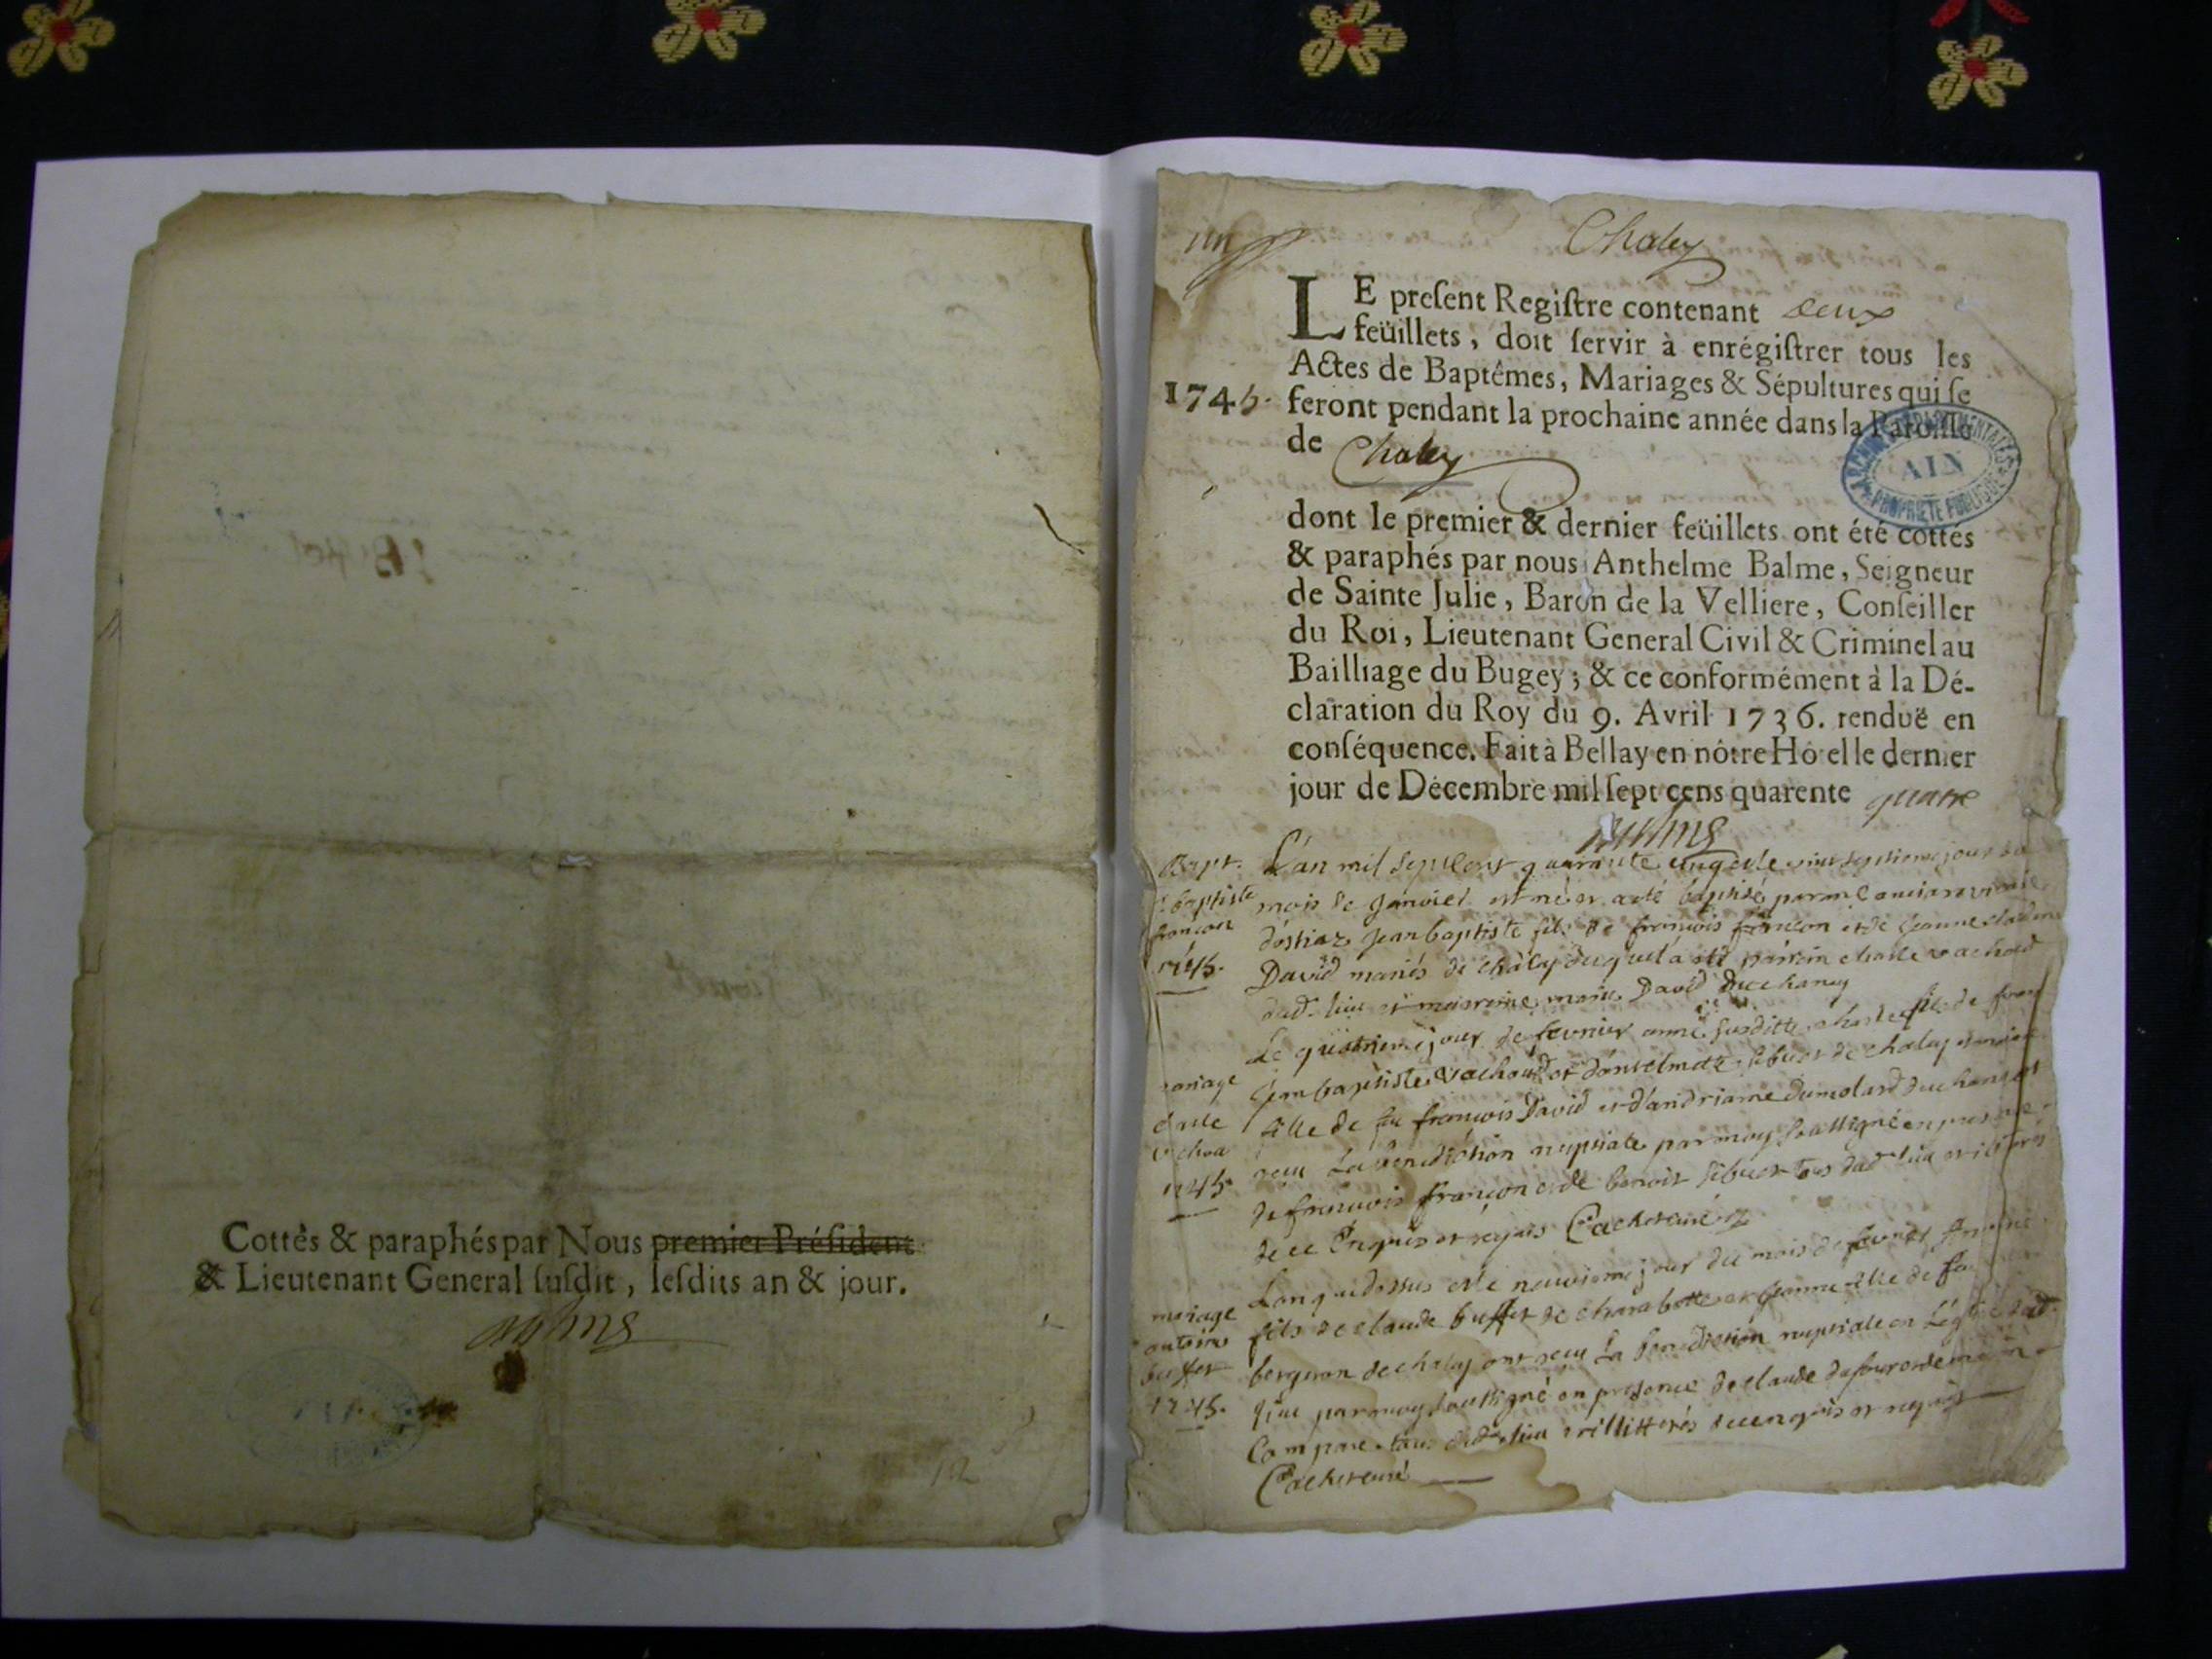 Cottés & paraphés par Nous premier Président
& Lieutenant General ſuſdit, leſdits an & jour.
Chaley
LE preſent Regiſtre contenant deux
feüillets, doit ſervir à enrégiſtrer tous les
Actes de Baptêmes, Mariages & Sépultures qui ſe
1745.
feront pendant la prochaine année dans la Paroiſſe
de Chaley
ARCHIVES DÉPARTEMENTALES
AIN
PROPRIÉTÉ PUBLIQUE
dont le premier & dernier feüillets ont été cottés
& paraphés par nous Anthelme Balme, Seigneur
de Sainte Julie, Baron de la Velliere, Conſeiller
du Roi, Lieutenant General Civil & Criminel au
Bailliage du Bugey; & ce conformément à la Dé-
claration du Roy du 9. Avril 1736. renduë en
conſéquence. Fait à Bellay en nôtre Hôtel le dernier
jour de Décembre mil ſept cens quarente quatre
Balme
Bapt.
baptiste
françon
1745.
L'an mil sept cent quarante cinq et le vint septieme jour du
mois de Janvier est né et a été baptisé par
Jean baptiste fils de françois françon et de Jeanne
David mariés de chaley duquel a été parrein charle vachod
dud. lieu et marreine marie David
mariage
charle
1745.
Le quatrieme jour de fevrier année susditte charle fils de
Jean baptiste vachoud et d'antelmette sibuet de chaley et
fille de feu francois David et d'andriane dumolard
reçu La benediction nuptiale par moy soussigné en
de francois françon et de benoit sibuet tous dud. lieu
de ce Enquis et requis Cachet curé
mariage
antoine
buffet
1745.
L'an que dessus et le neuvieme jour du mois de fevrier
fils de claude buffet de charabotte et Jeanne fille de
bergeron de chaley ont reçu La benediction nuptiale en L'église
par moy soussigné en presence de claude
tous dud. lieu illitterés de ce enquis et requis
Cachet curé